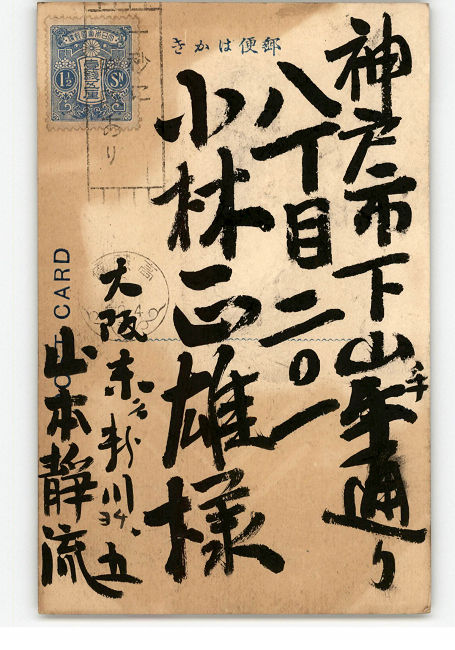 郵便はかき
神戸市下山手通り
八丁目二〇一
小林正雄様
大阪東
山本静流
CARD
1½ SN